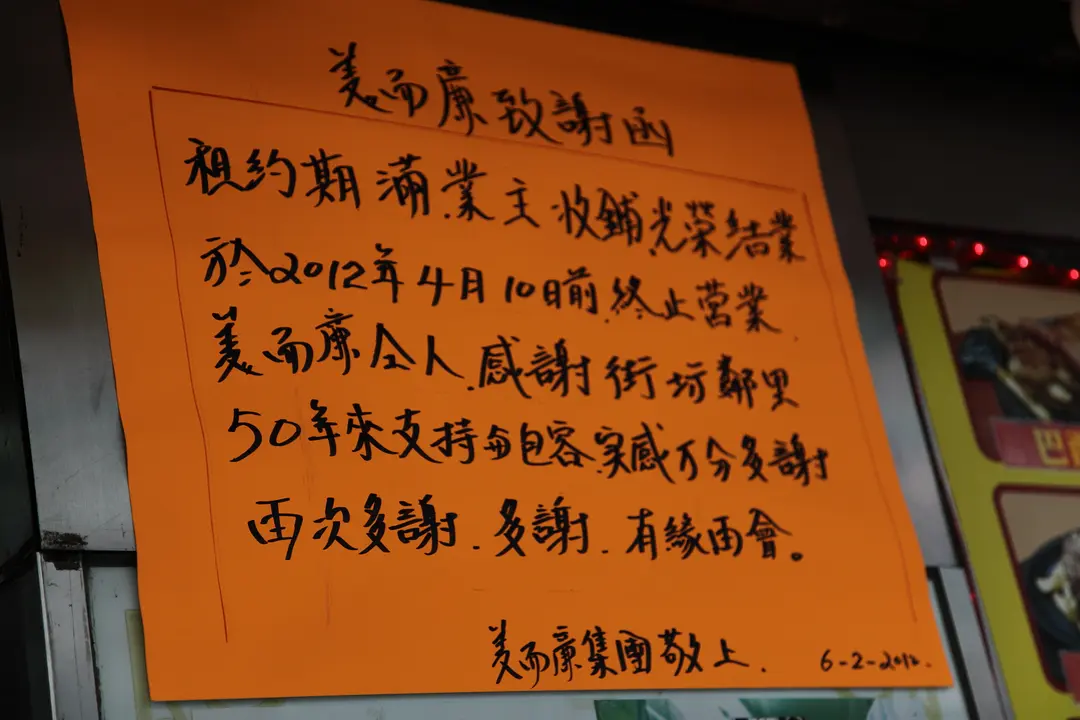 美而廉致謝函
租約期滿.業主收鋪光榮結業
於2012年4月10日前.終止营業.
美而廉仝人.感謝街坊鄰里
50年來支持与包容.实感万分多謝
再次多謝.多謝.有緣再會。
美而廉集團敬上.
6-2-2012.
巴